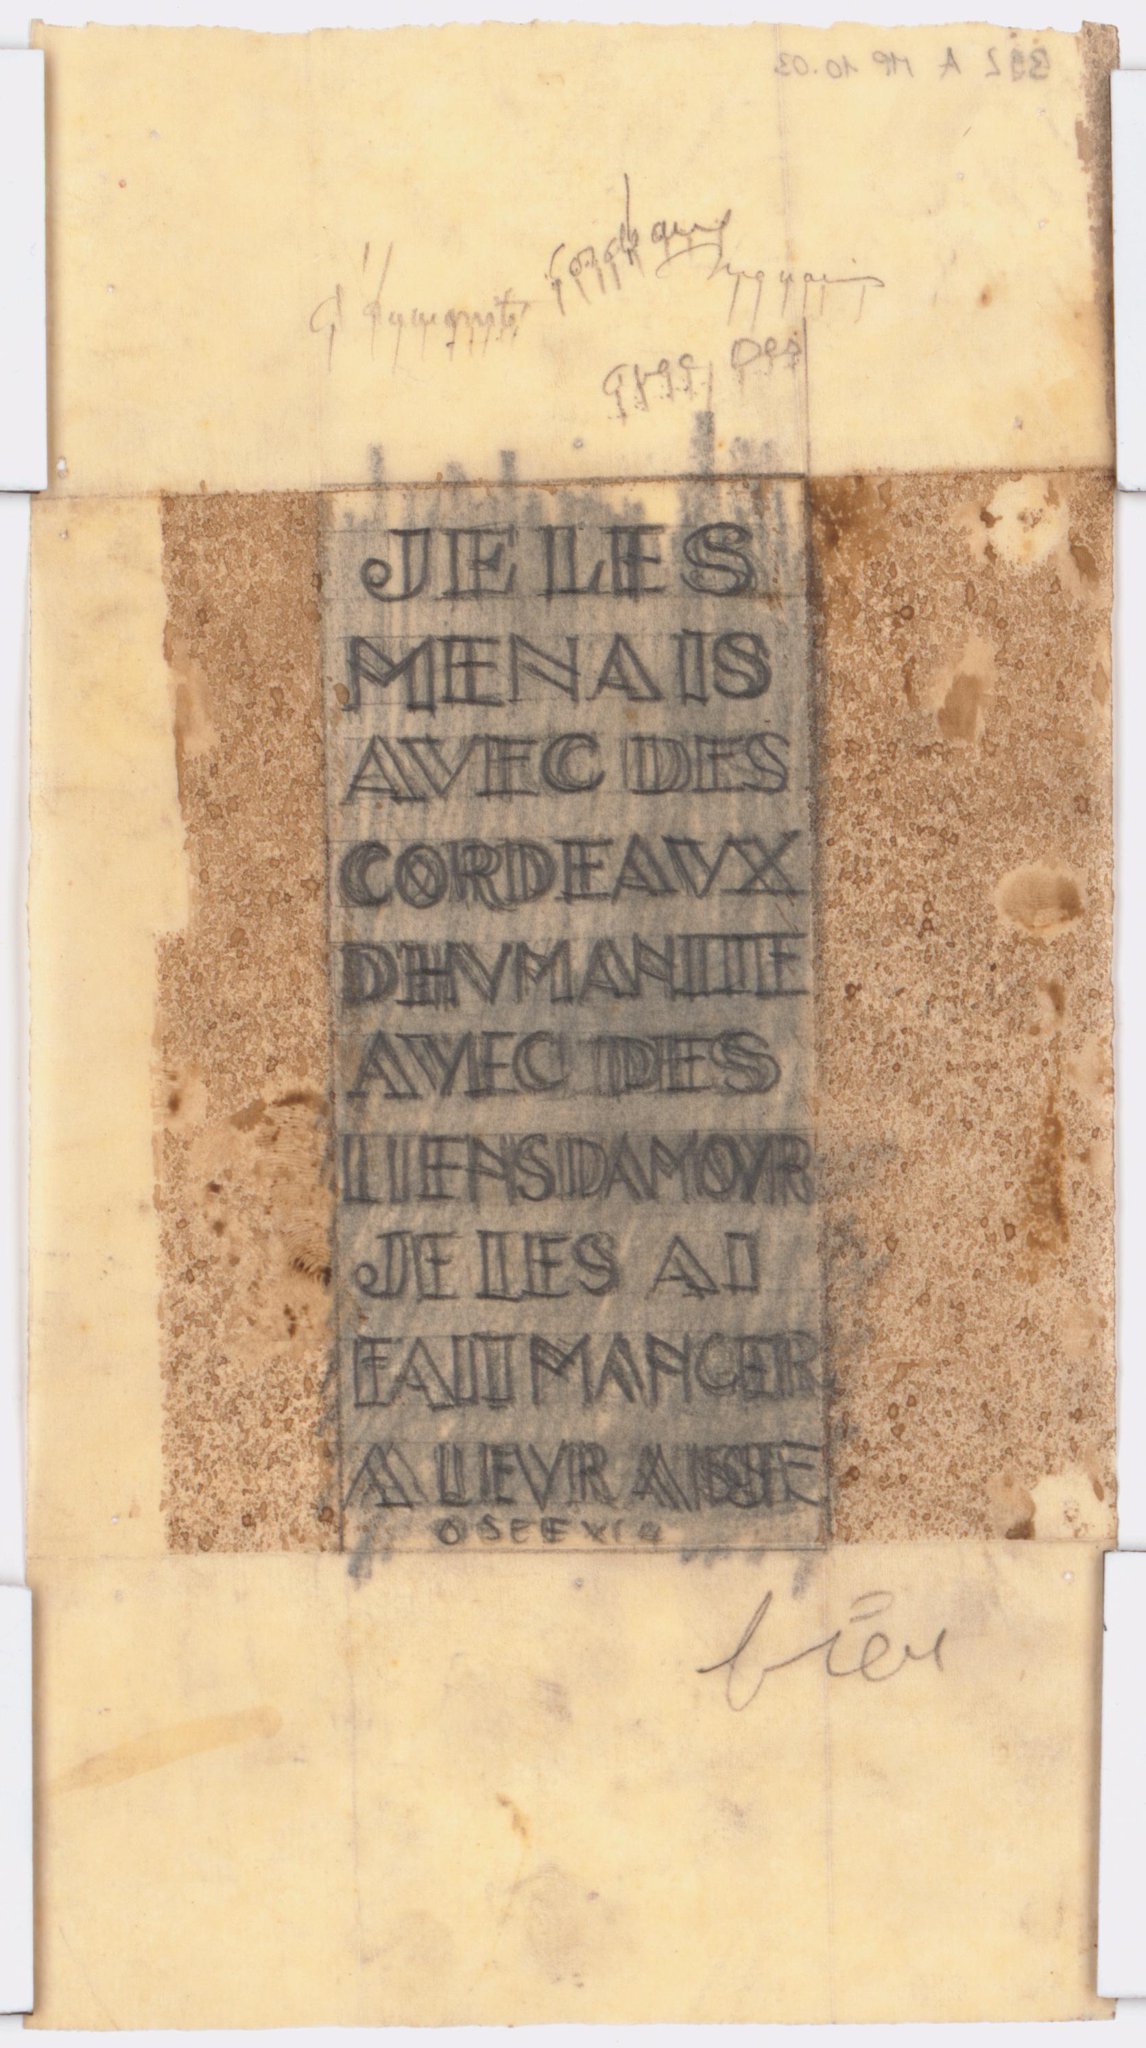 JE LES
MENAIS
AVEC DES
CORDEAVX
D'HVMANITE
AVEC DES
LIENS DAMOVR
JE LES AI
FAIT MANGER
A LEVR AISE
OSEE XI 4